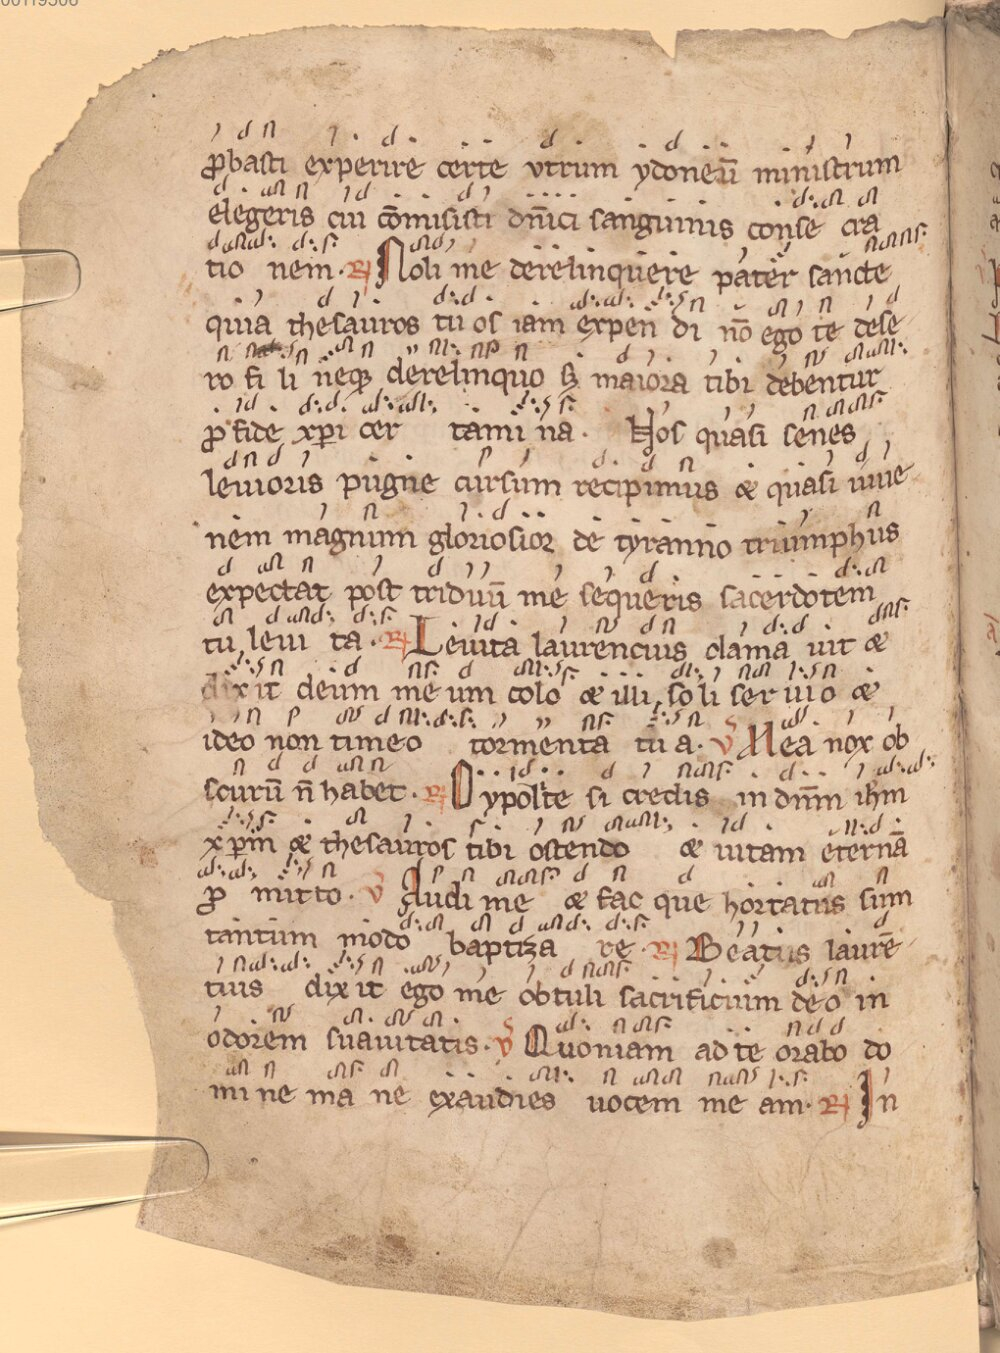 ꝓbasti experire certe utrum ydoneū ministrum
elegeris cui cōmisisti dn̄ici sanguinis conse cra
tio nem. ℟ Noli me derelinquere pater sancte
quia thesauros tu os iam expen di nō ego te dese
ro fi li neqꝫ derelinquo sꝫ maiora tibi debentur
ꝓ fide xp̄i cer tami na. Nos quasi senes
leuioris pugne cursum recipimus & quasi iuue
nem magnum gloriosior de tyranno triumphus
expectat post triduū me sequeris sacerdotem
tu, leui ta. ℟ Leuita laurencius clama uit &
dixit deum me um colo & illi, so li ser uio &
ideo non timeo tormenta tu a. ℣ Mea nox ob
scurū n̄ habet. ℟ Ypolite si credis in dn̄m ihm
xp̄m & thesauros tibi ostendo & uitam eternā
ꝓ mitto. ℣ Audi me & fac que hortatus sum
tantum modo baptiza re. ℟ Beatus laurē
tius dixit ego me obtuli sacrificium deo in
odorem suauitatis. ℣ Quoniam ad te orabo do
mi ne ma ne exaudies uocem me am. ℟ In